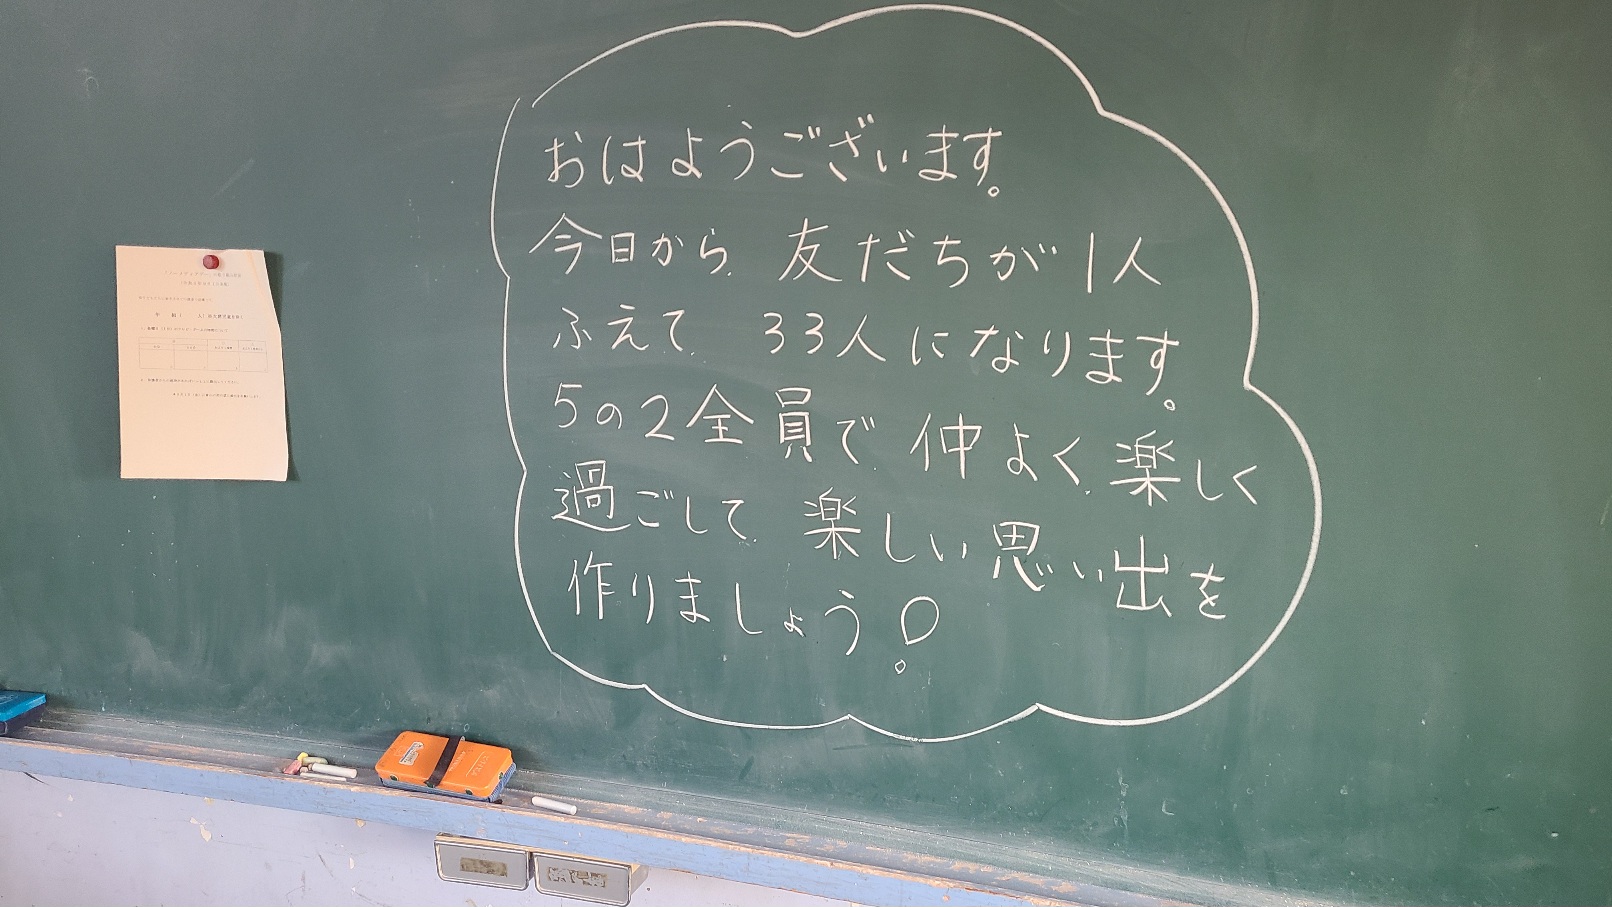 おはようございます。
今日から、友だちが1人
ふえて、33人になります。
5の2全員で、仲よく、楽しく
過ごして、楽しい思い出を
作りましょう!